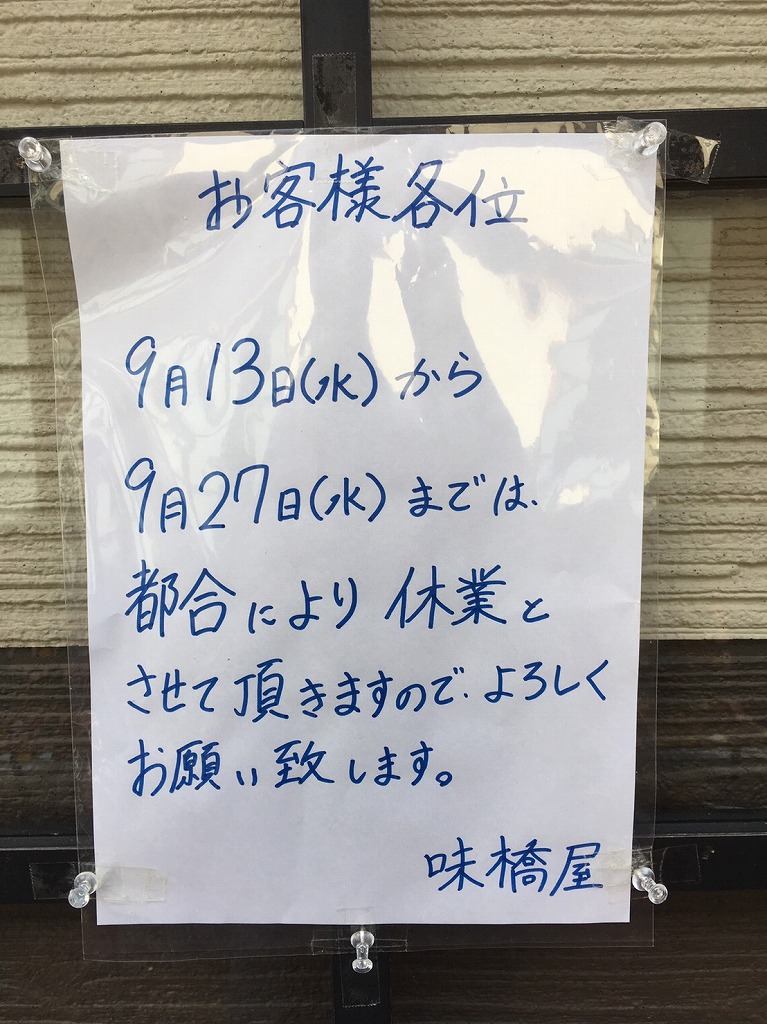 お客様各位
9月13日(水)から
9月27日(水)までは、
都合により休業と
させて頂きますので、よろしく
お願い致します。
味橋屋